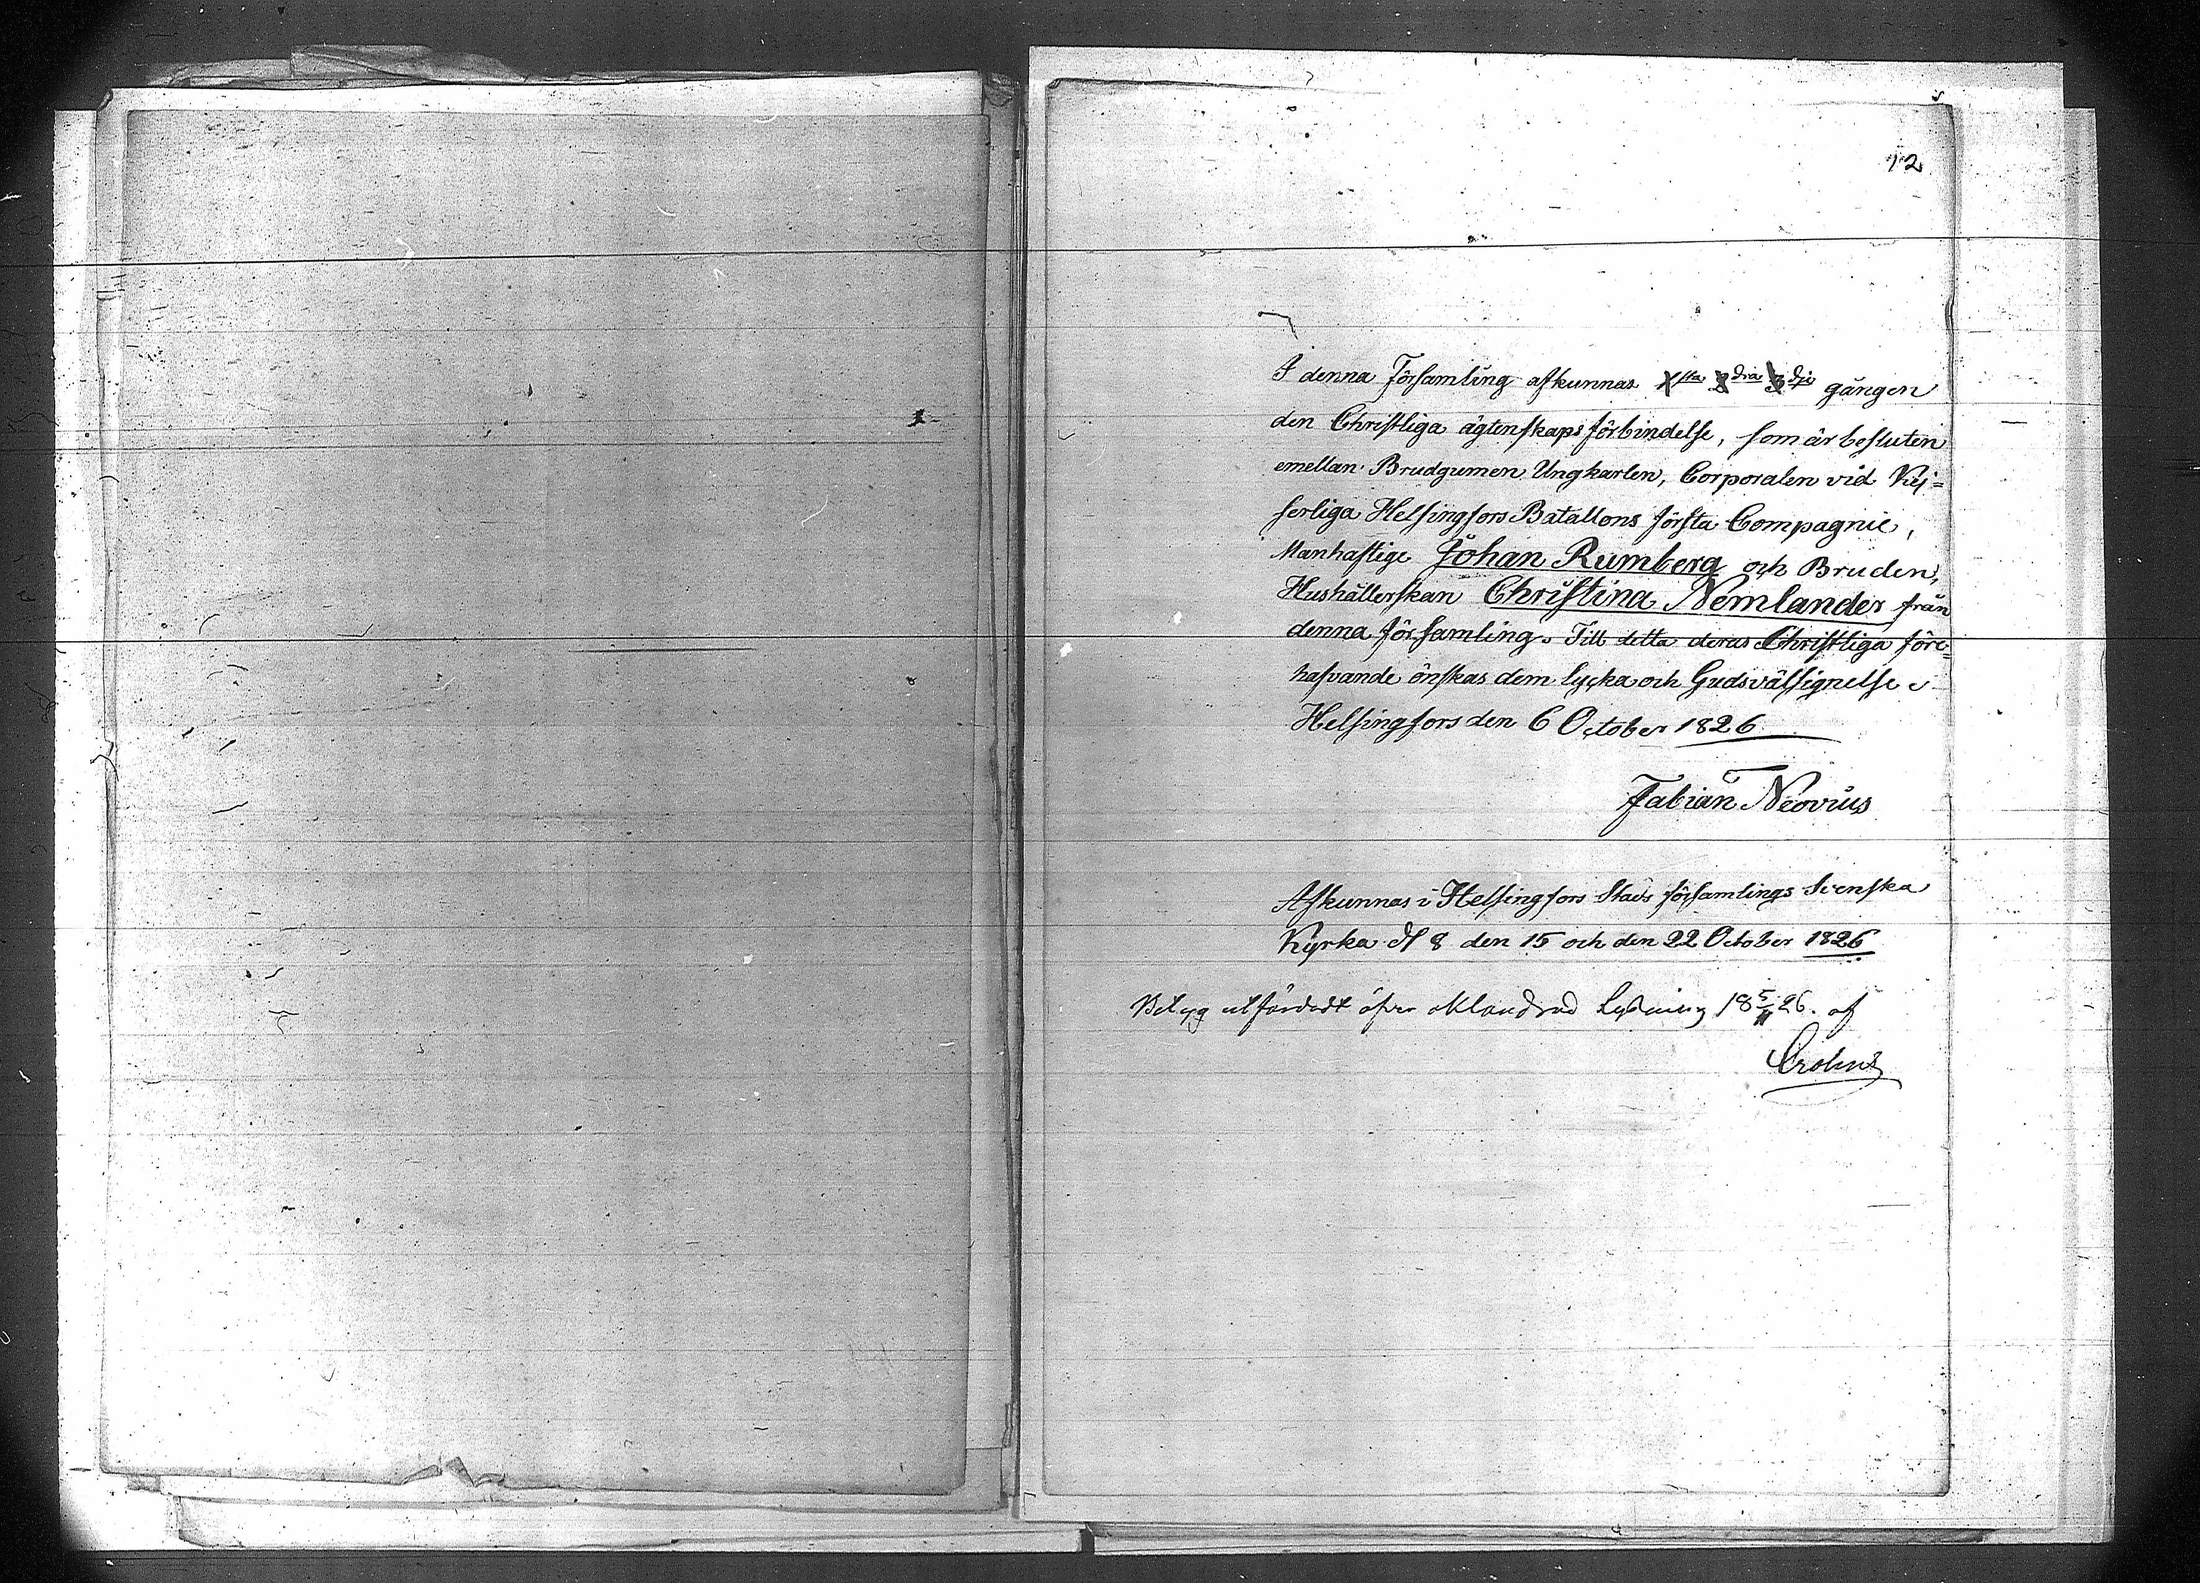 12
I denna Församling afkunnas 1sta 2dra 3dje gången
den Christliga ägtenskapsförbindelse, som är besluten
emellan Brudgumen Ungkarlen, Corporalen vid Kej=
serliga Helsingfors Batallons första Compagnie,
Manhaftige Johan Rumberg och Bruden,
Hushållerskan Christina Nemlander från
denna församling. Till detta deras Christliga före=
hafvande önskas dem lycka och Guds välsignelse.
Helsingfors den 6 October 1826
Fabian Neovius
Afkunnas i Helsingfors Stads församlings Svenska
Kyrka d 8 den 15 och den 22 October 1826
Betyg utfärdadt öfver oklandrad Lysning 18 5/11 26. af
Crohns